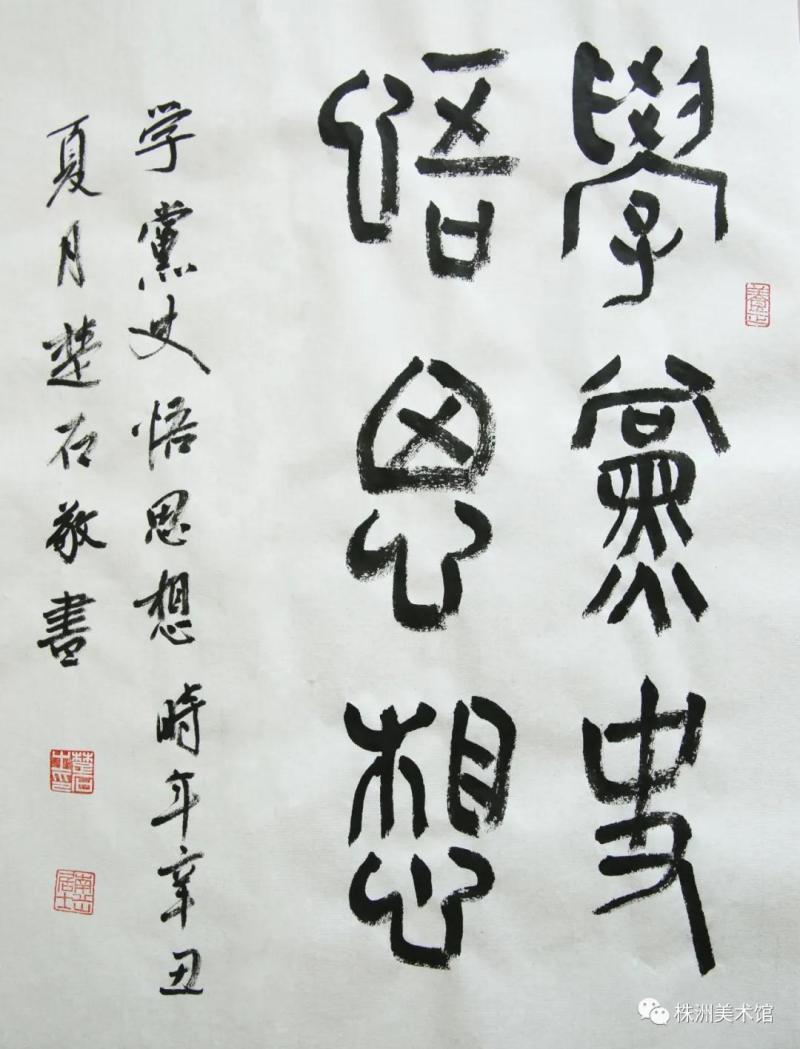 學黨史
悟思想
学黨史悟思想 時年辛丑
夏月楚石敬書
楚石
南岳居士
株洲美术馆